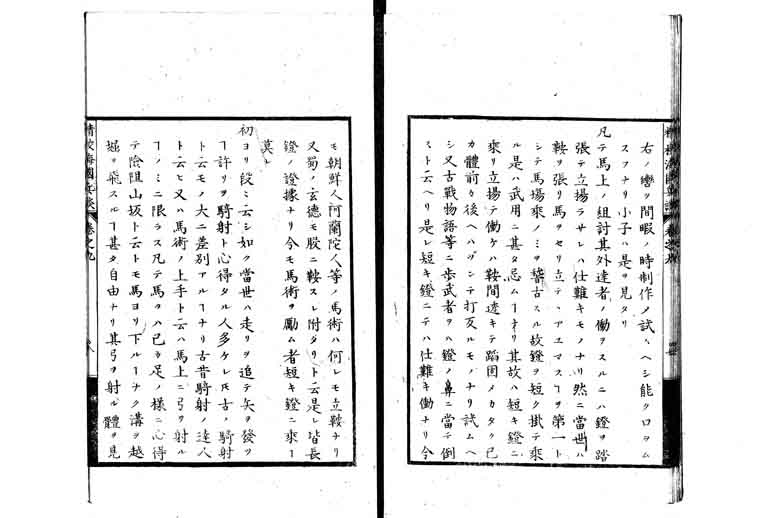 右ノ轡ヲ間暇ノ時制作ノ試ミヘシ能クロヲム
スフナリ小子ハ是ヲ見タリ
凡テ馬上ノ組討其外達者ノ働ヲスルニハ鐙ヲ踏
張テ立揚ラサレハ仕難キモノナリ然ニ當世ハ
鞍ヲ張リ馬ヲセリ立テヽアユマスヿヲ第一ト
シテ馬場乘ノミヲ稽古スル故鐙ヲ短ク掛テ乘
ル是ハ武用ニ甚タ忌ムヿナリ其故ハ短キ鐙ニ
乘リ立揚テ働ケハ鞍間透キテ蹈固メカタク己
カ體前カ後ヘハヅンテ打反ルモノナリ試ムヘ
シ又古戰物語等ニ歩武者ヲハ鐙ノ鼻ニ當テ倒
スト云ヘリ是レ短キ鐙ニテハ仕難キ働ナリ今
モ朝鮮人阿蘭陀人等ノ馬術ハ何レモ立鞍ナリ
又蜀ノ玄德モ股ニ鞍スレ附タリト云是レ皆長
鐙ノ證據ナリ今モ馬術ヲ勵ム者短キ鐙ニ乘ヿ
莫レ
初ヨリ段ミ云シ如ク當世ハ走リヲ追テ矢ヲ發ツ
ヿ許リヲ騎射ト心得タル人多ケレ𪜈古ノ騎射
ト云モノ大ニ差別アルヿナリ古昔騎射ノ達人
ト云ヒ又ハ馬術ノ上手ト云ハ馬上ニ弓ヲ射ル
ヿノミニ限ラス凡テ馬ヲハ己カ足ノ樣ニ心得
テ險阻山坂ト云トモ馬ヨリ下ルヿナク溝ヲ越
堀ヲ飛スルヿ甚タ自由ナリ其弓ヲ射ル體ヲ見
精校海國兵談
卷之九